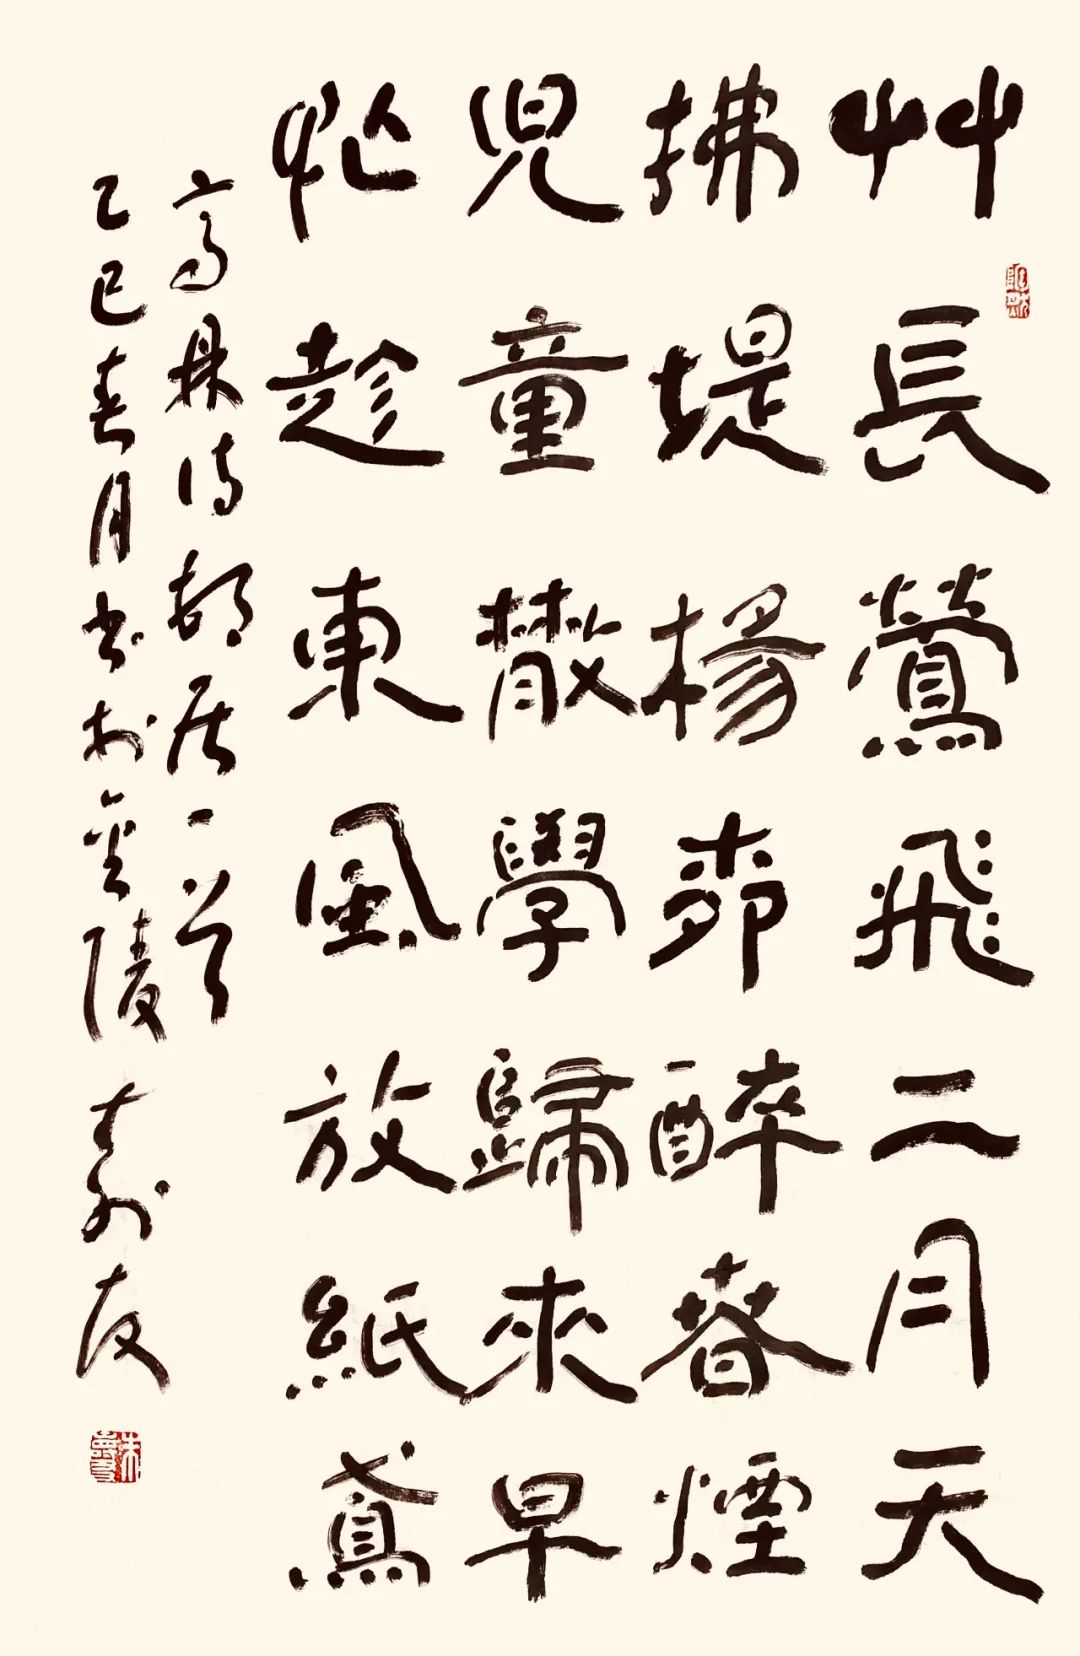 艸長鶯飛二月天
拂堤楊桺醉春煙
兒童散學歸來早
忙趁東風放紙鳶
高鼎詩邨居一首
乙巳春月書於金陵壽友
朱壽友